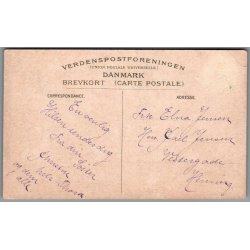 VERDENSPOSTFORENINGEN
(UNION POSTALE UNIVERSELLE)
DANMARK
BREVKORT (CARTE POSTALE)
CORRESPONDANCE:
ADRESSE:
En venlig
Hilsen
Fra din
og dem
alle
Frk Elna Jensen
Hr. Carl Jensen
Vestergade